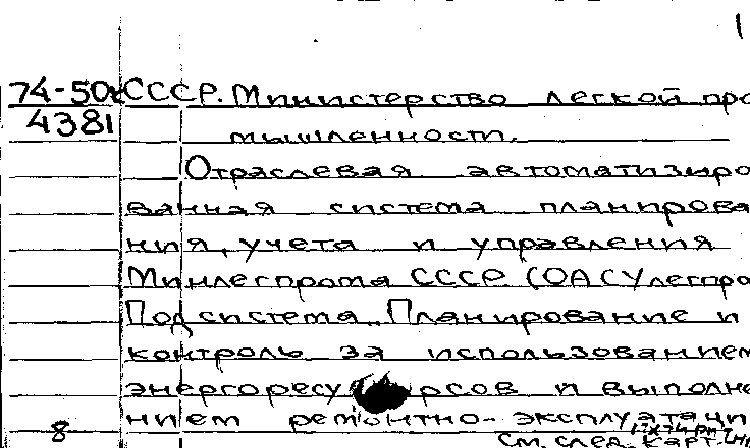 1
74-50 СССР. Министерство легкой про
4381 мышленности.
Отраслевая автоматизиро
ванная система планирова
ния, учета и управления
Минлегпрома СССР (ОАСУлегпро
Подсистема „Планирование и
контроль за использованием
энергоресурсов и выполне
нием ремонтно-эксплуатаци
8 См. след. карт.